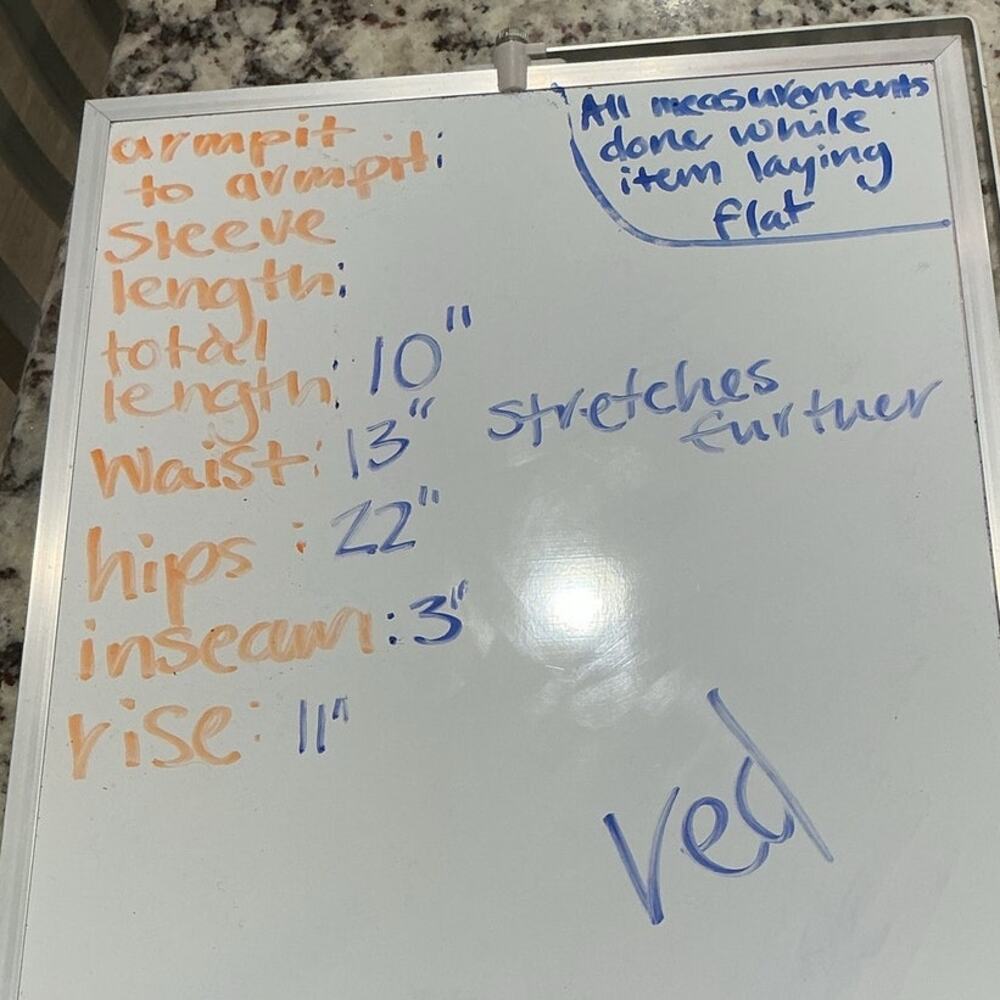 All measurements
done while
item laying
flat
armpit
to armpit:
Sleeve
length:
total
length: 10"
Waist: 13" stretches
further
hips : 22"
inseam: 3"
rise: 11"
red